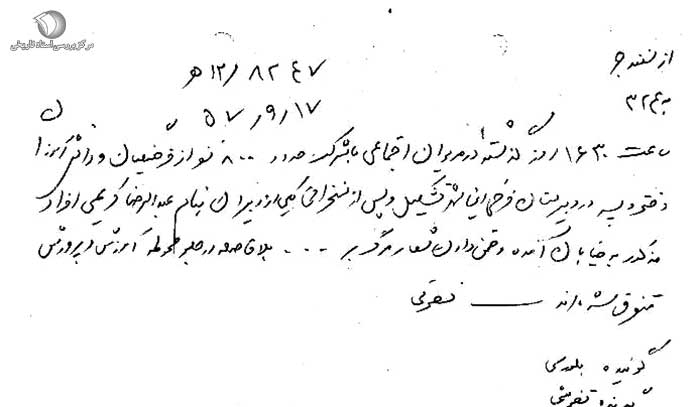 مرکز بررسی اسناد تاریخی
از سنندج
به ۳۲۴
۱۲/۸۲۴۷ ه
۵۷/۹/۱۷
ساعت ۱۶۳۰ روز گذشته در مریوان اجتماعی با شرکت حدود ۸۰۰ نفر از فرهنگیان و دانش‌آموزان
دختر و پسر در دبیرستان فرح این شهر تشکیل و پس از سخنرانی یکی از دبیران بنام عبدالرضا کریمی افراد
مذکور به خیابان آمده و ضمن دادن شعار مرگ بر ... بلافاصله در جلو محوطه آموزش و پرورش
متفرق شده‌اند
گوینده
گیرنده تفرشی